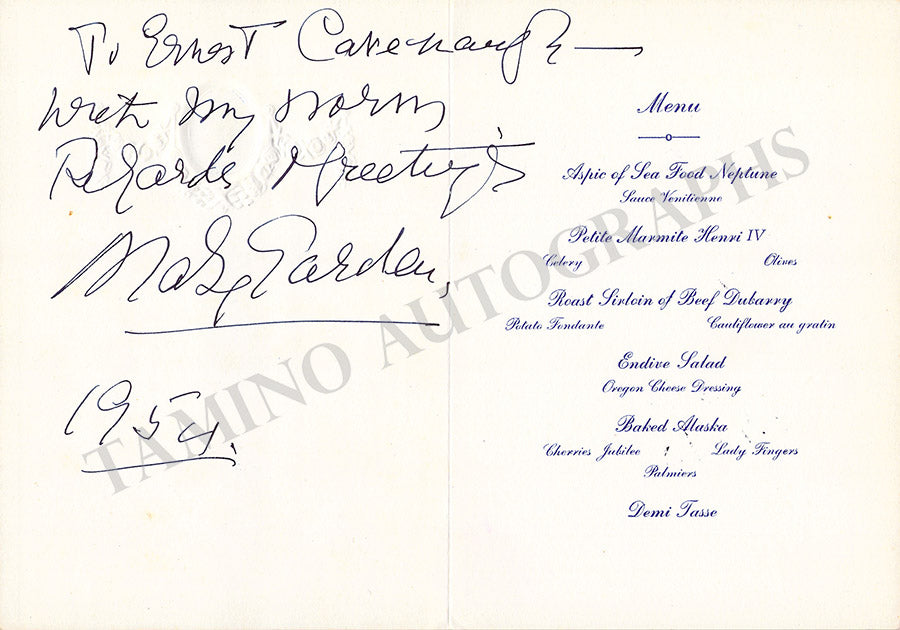 To Ernest Cavenaugh —
with my warm
Regards & Greetings
Mary Garden.
1954.
Menu
Aspic of Sea Food Neptune
Sauce Venitienne
Petite Marmite Henri IV
Celery Olives
Roast Sirloin of Beef Dubarry
Potato Fondante Cauliflower au gratin
Endive Salad
Oregon Cheese Dressing
Baked Alaska
Cherries Jubilee Lady Fingers
Palmiers
Demi Tasse
TAMINO AUTOGRAPHS